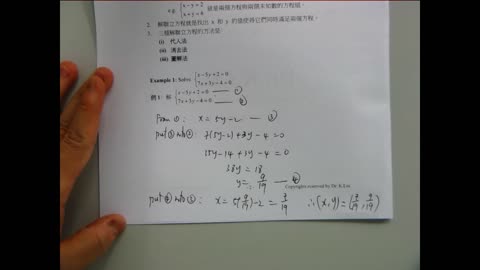 e.g. { x−y=2
x+y=4 就是兩個方程與兩個未知數的方程組。
2. 解聯立方程就是找出 x 和 y 的值使得它們同時滿足兩個方程。
3. 三種解聯立方程的方法是:
(i) 代入法
(ii) 消去法
(iii) 圖解法
Example 1: Solve { x−5y+2=0
7x+3y−4=0
例 1: 解 { x−5y+2=0 —— ①
7x+3y−4=0 —— ②
From ①: x = 5y−2 —— ③
put ③ into ② 7(5y−2)+3y−4=0
35y−14+3y−4=0
38y=18
y= 9/19 —— ④
Copyrights reserved by Dr. K Liu
put ④ into ③: x = 5(9/19)−2 = 7/19 ∴(x,y)=(7/19, 9/19)